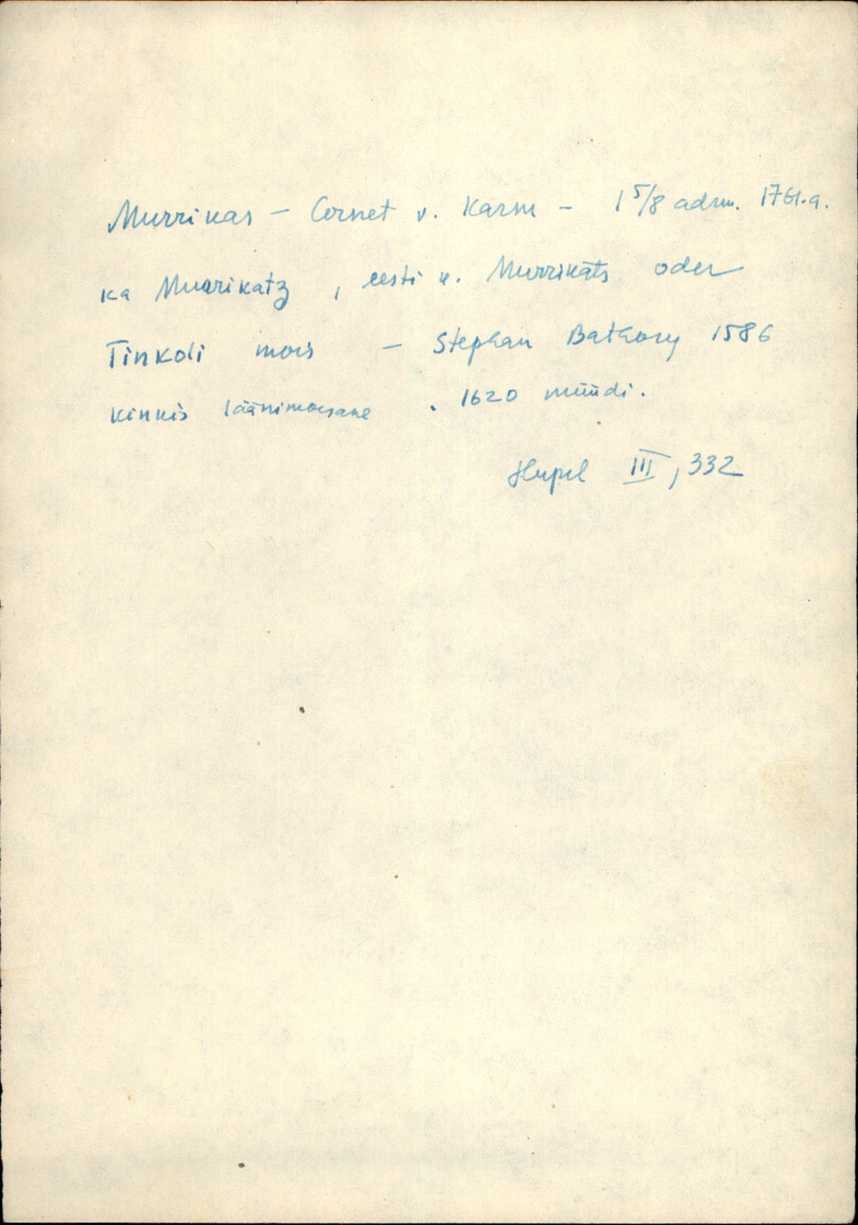 Murrikas – Cornet v. Karm – 1 5/8 adrm. 1761.a.
ka Muurikatz, eesti k. Murrikäts oder
Tinkoli mois – Stephan Bathory 1586
kinkis läänimoisane. 1620 müüdi.
Hupel III, 332